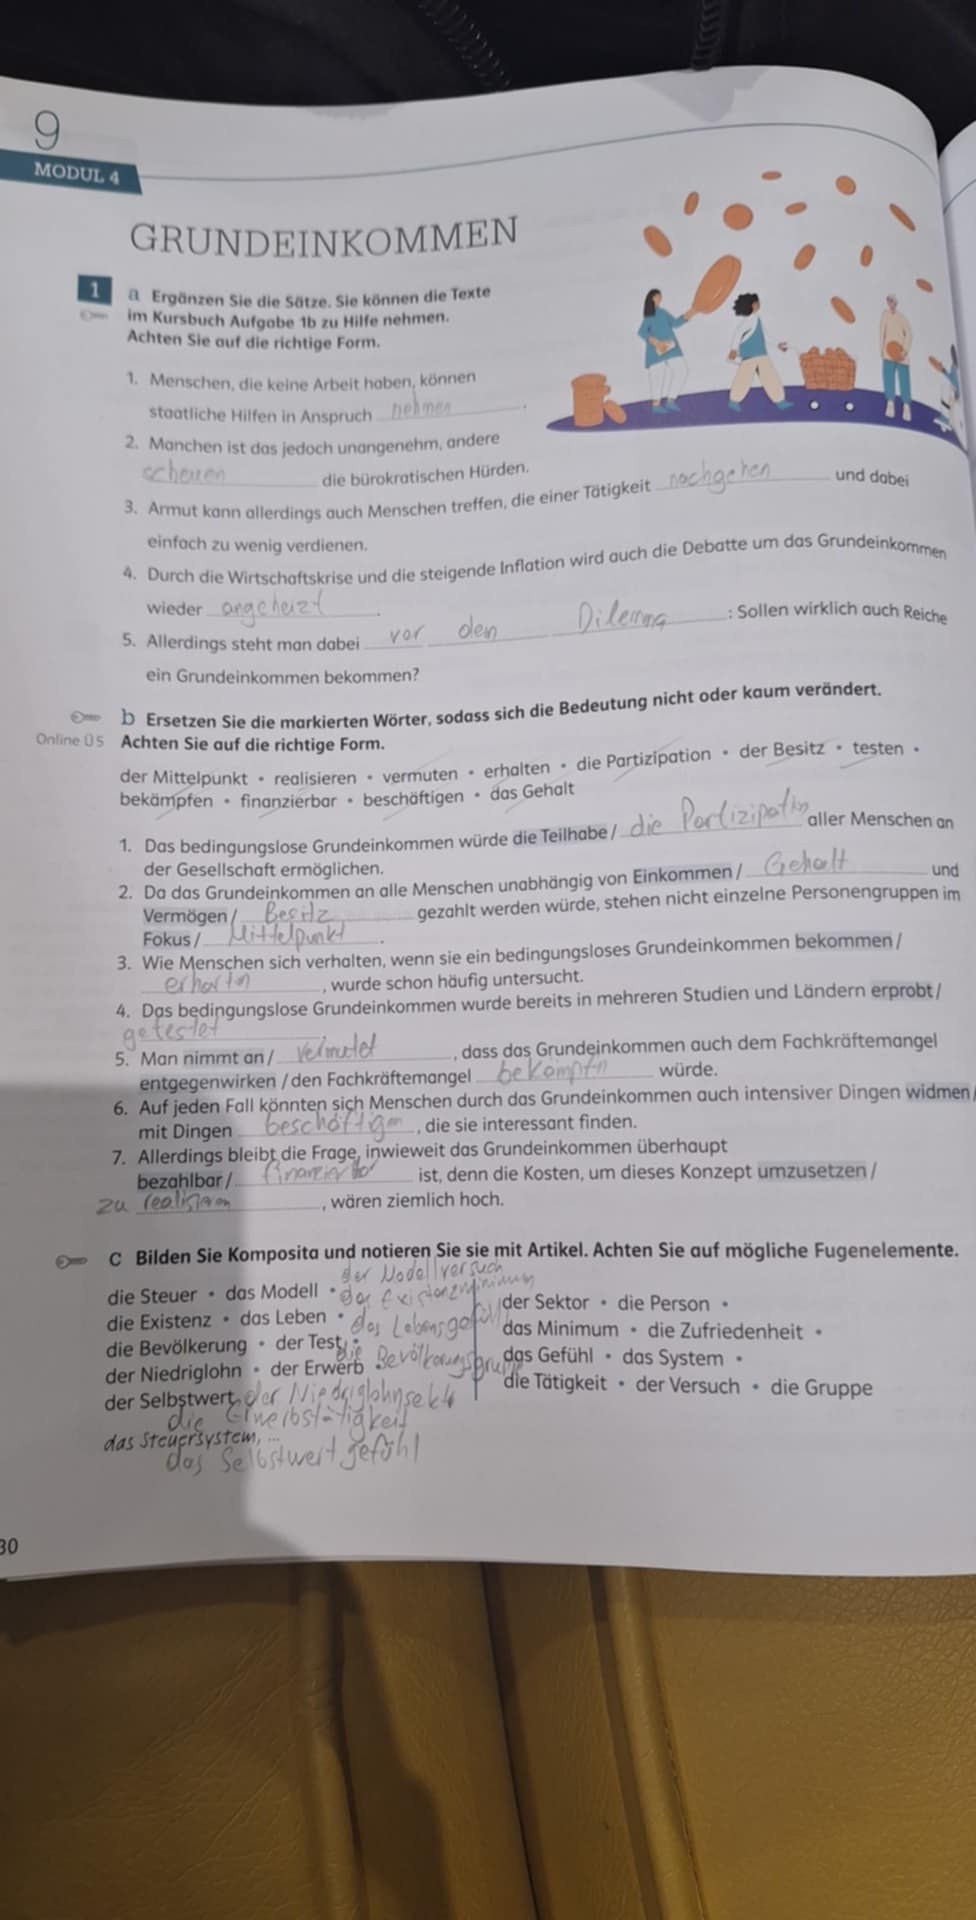 9
MODUL 4
GRUNDEINKOMMEN
1 a Ergänzen Sie die Sätze. Sie können die Texte
im Kursbuch Aufgabe 1b zu Hilfe nehmen.
Achten Sie auf die richtige Form.
1. Menschen, die keine Arbeit haben, können
staatliche Hilfen in Anspruch nehmen.
2. Manchen ist das jedoch unangenehm, andere
scheuen die bürokratischen Hürden.
3. Armut kann allerdings auch Menschen treffen, die einer Tätigkeit nachgehen und dabei
einfach zu wenig verdienen.
4. Durch die Wirtschaftskrise und die steigende Inflation wird auch die Debatte um das Grundeinkommen
wieder angeheizt.
5. Allerdings steht man dabei vor den Dilemma: Sollen wirklich auch Reiche
ein Grundeinkommen bekommen?
b Ersetzen Sie die markierten Wörter, sodass sich die Bedeutung nicht oder kaum verändert.
Online Ü5 Achten Sie auf die richtige Form.
der Mittelpunkt • realisieren • vermuten • erhalten • die Partizipation • der Besitz • testen •
bekämpfen • finanzierbar • beschäftigen • das Gehalt
1. Das bedingungslose Grundeinkommen würde die Teilhabe / die Partizipation aller Menschen an
der Gesellschaft ermöglichen.
2. Da das Grundeinkommen an alle Menschen unabhängig von Einkommen / Gehalt und
Vermögen / Besitz gezahlt werden würde, stehen nicht einzelne Personengruppen im
Fokus / Mittelpunkt.
3. Wie Menschen sich verhalten, wenn sie ein bedingungsloses Grundeinkommen bekommen /
, wurde schon häufig untersucht.
4. Das bedingungslose Grundeinkommen wurde bereits in mehreren Studien und Ländern erprobt /
getestet
5. Man nimmt an / vermutet, dass das Grundeinkommen auch dem Fachkräftemangel
entgegenwirken / den Fachkräftemangel bekämpfn würde.
6. Auf jeden Fall könnten sich Menschen durch das Grundeinkommen auch intensiver Dingen widmen /
mit Dingen beschäftigen, die sie interessant finden.
7. Allerdings bleibt die Frage, inwieweit das Grundeinkommen überhaupt
bezahlbar / finanzierbar ist, denn die Kosten, um dieses Konzept umzusetzen /
zu realisieren, wären ziemlich hoch.
c Bilden Sie Komposita und notieren Sie sie mit Artikel. Achten Sie auf mögliche Fugenelemente.
der Modellversuch
die Steuer • das Modell • das Existenzminimum der Sektor • die Person •
die Existenz • das Leben • das Lebensgefühl das Minimum • die Zufriedenheit •
die Bevölkerung • der Test • die Bevölkerungsgruppe das Gefühl • das System •
der Niedriglohn • der Erwerb • die Tätigkeit • der Versuch • die Gruppe
der Selbstwert der Niedriglohnsektor
die Erwerbstätigkeit
das Steuersystem, ...
das Selbstwertgefühl
30